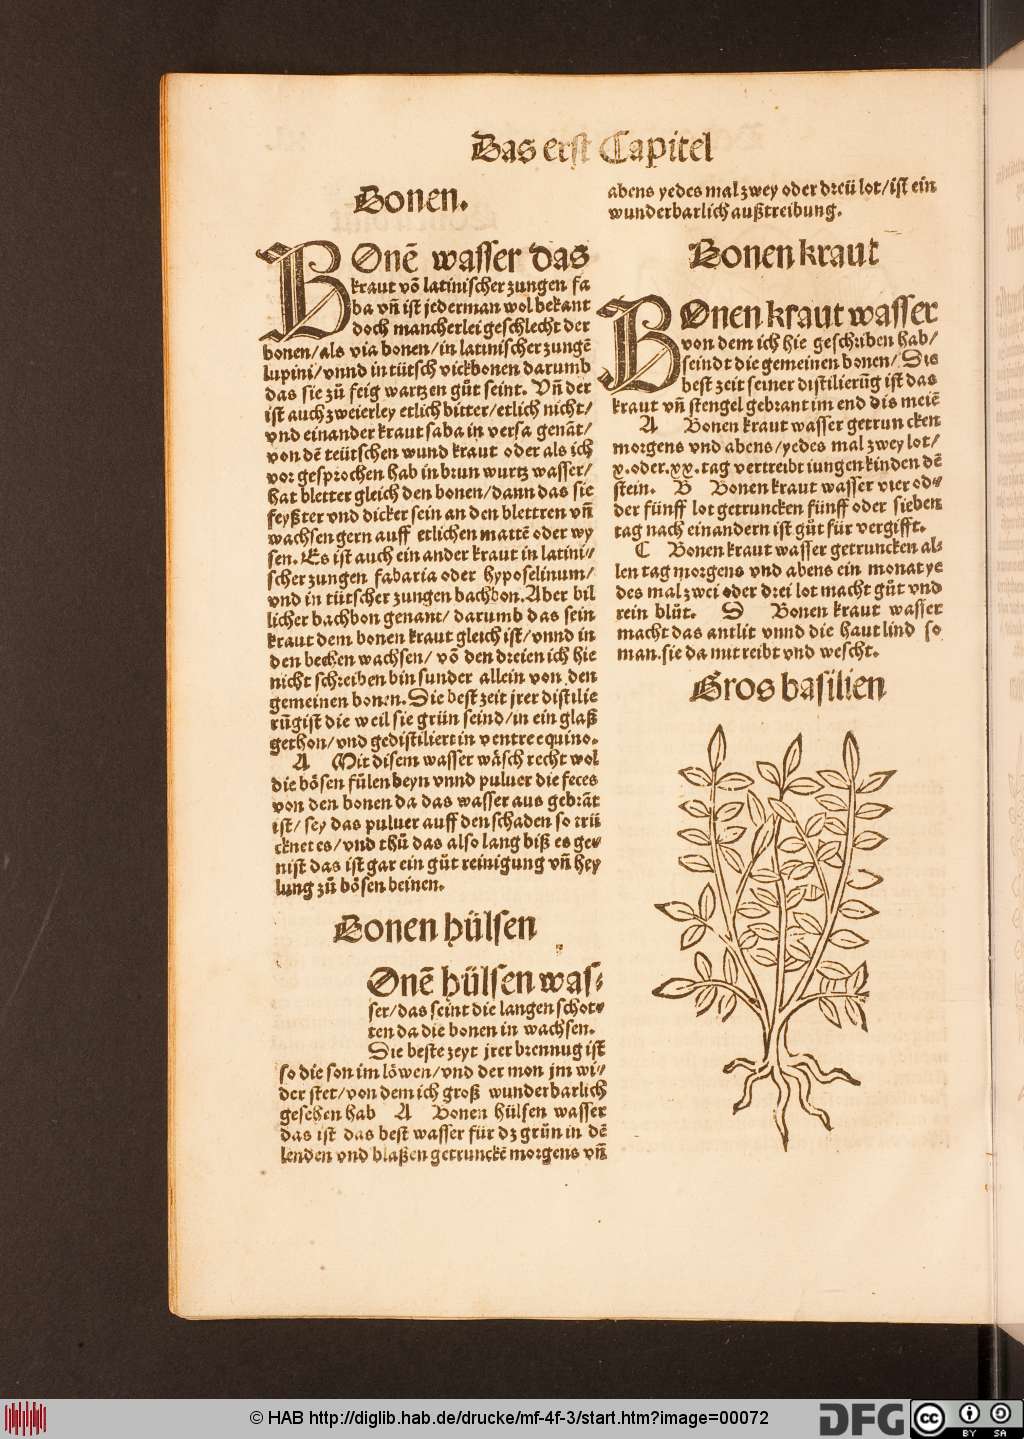 Das erst Capitel
Bonen.
BOnē wasser das
kraut vō latinischer zungen fa
ba vñ ist jederman wol bekant
doch mancherlei geschlecht der
bonen/als via bonen/in latinischer zungē
lupini/vnnd in tütsch vickbonen darumb
das sie zů feig wartzen gůt seint. Vñ der
ist auch zweierley etlich bitter/etlich nicht/
vnd ein ander kraut faba in versa genāt/
von dē teütschen wund kraut oder als ich
vor gesprochen hab in brun wurtz wasser/
hat bletter gleich den bonen/dann das sie
feyßter vnd dicker sein an den blettren vñ
wachsen gern auff etlichen mattē oder wy
sen. Es ist auch ein ander kraut in latini/
scher zungen fabaria oder hyposelinum/
vnd in tütscher zungen bachbon. Aber bil
licher bachbon genant/ darumb das sein
kraut dem bonen kraut gleich ist/vnnd in
den bechen wachsen/ vō den dreien ich hie
nicht schreiben bin sunder allein von den
gemeinen bonen. Die best zeit jrer distilie
rūg ist die weil sie grün seind/in ein glaß
gethon/vnd gedistiliert in ventre equino.
A Mit disem wasser wäsch recht wol
die bösen fülen beyn vnnd puluer die feces
von den bonen da das wasser aus gebrāt
ist/ sey das puluer auff den schaden so trü
cknet es/vnd thů das also lang biß es ge⸗
nist das ist gar ein gůt reinigung vñ hey
lung zů bösen beinen.
Bonen hülsen
Onē hülsen was⸗
ser/das seint die langen schot⸗
ten da die bonen in wachsen.
Die beste zeyt jrer brennug ist
so die son im löwen/vnd der mon jm wi/
der stet/von dem ich groß wunderbarlich
gesehen hab A Bonen hülsen wasser
das ist das best wasser für dz grün in dē
lenden vnd blaßen getrunckē morgens vñ
abens yedes mal zwey oder dreü lot/ist ein
wunderbarlich außtreibung.
Bonen kraut
BOnen kraut wasser
von dem ich hie geschriben hab/
seindt die gemeinen bonen/ Die
best zeit seiner distilierūg ist das
kraut vñ stengel gebrant im end dis meiē
A Bonen kraut wasser getruncken
morgens vnd abens/yedes mal zwey lot/
x.oder.xx.tag vertreibt iungen kinden dē
stein. B Bonen kraut wasser vier od⸗
der fünff lot getruncken fünff oder sieben
tag nach einandern ist gůt für vergifft.
C Bonen kraut wasser getruncken al⸗
len tag morgens vnd abens ein monat ye
des mal zwei oder drei lot macht gůt vnd
rein blůt. D Bonen kraut wasser
macht das antlit vnnd die haut lind so
man sie da mit reibt vnd wescht.
Gros basilien
© HAB http://diglib.hab.de/drucke/mf-4f-3/start.htm?image=00072
DFG
cc
BY SA